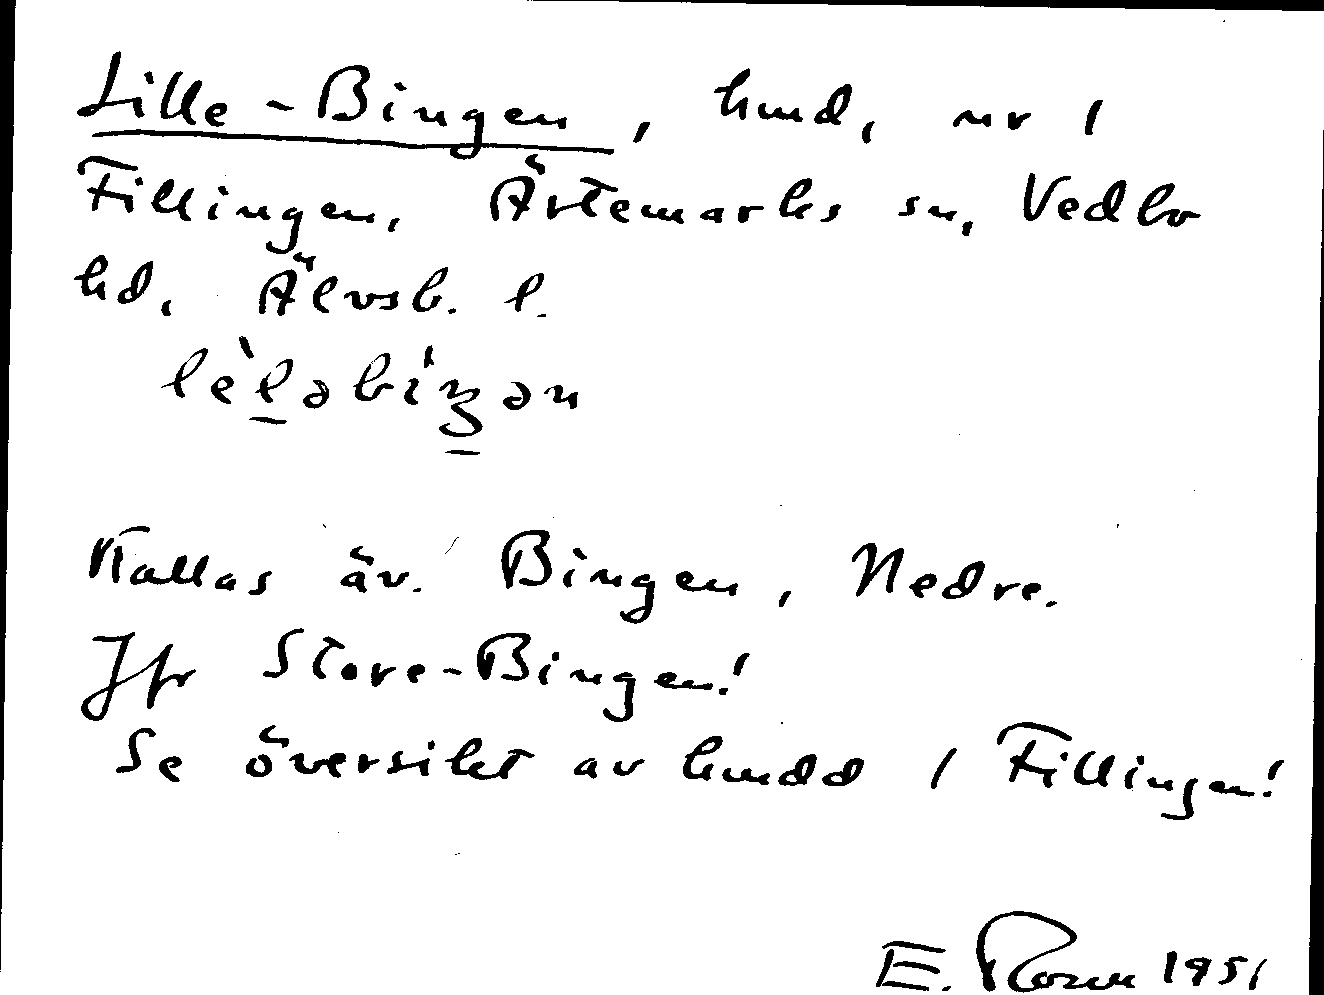 Lille-Bingen, hmd, nr 1
Fillingen, Ärtemarks sn, Vedbo
hd, Älvsb. l.
Kallas äv. Bingen, Nedre.
Jfr Store-Bingen!
Se översikt av hmdd / Fillingen!
E. Rosen 1951